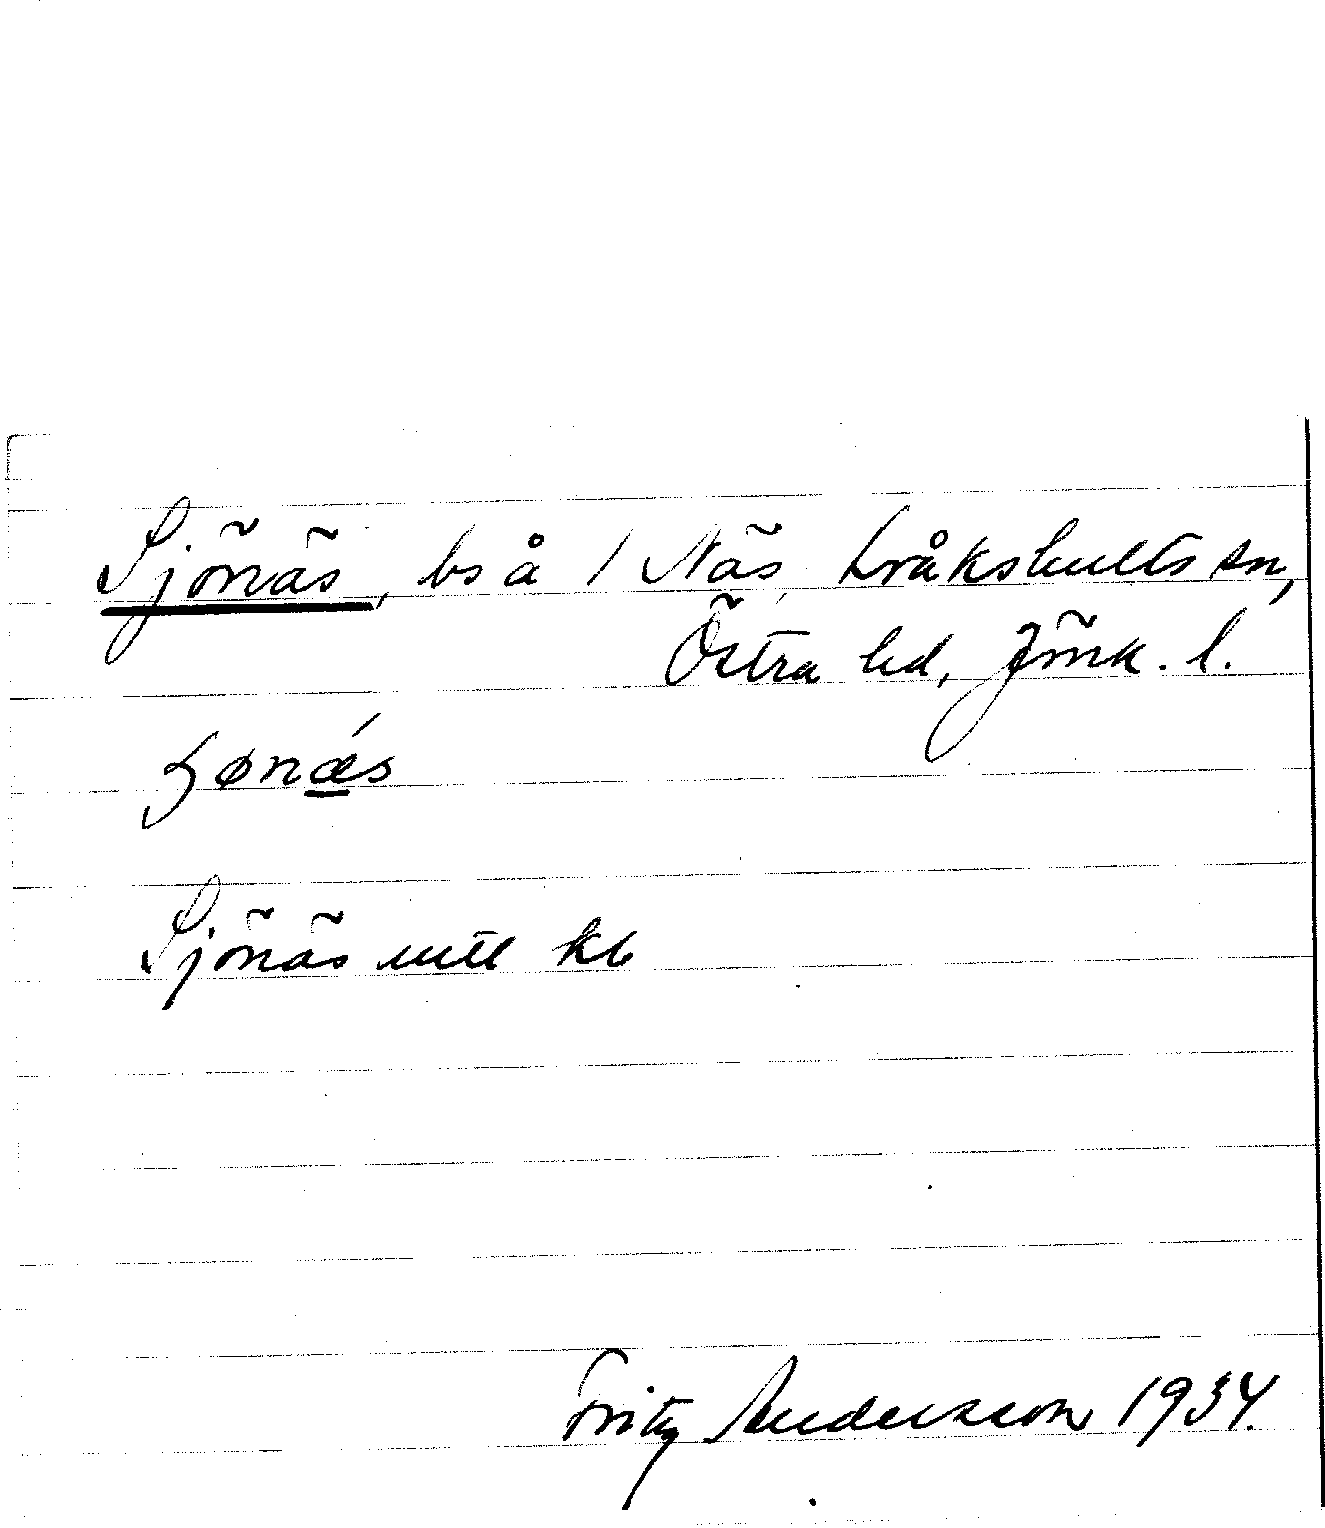 Sjönäs, bs å 1 Näs, Lråkshults sn,
Östra hd, Jönk. l.
ʃønǽs
Sjönäs uttl kb
Fritz Andersson 1934.